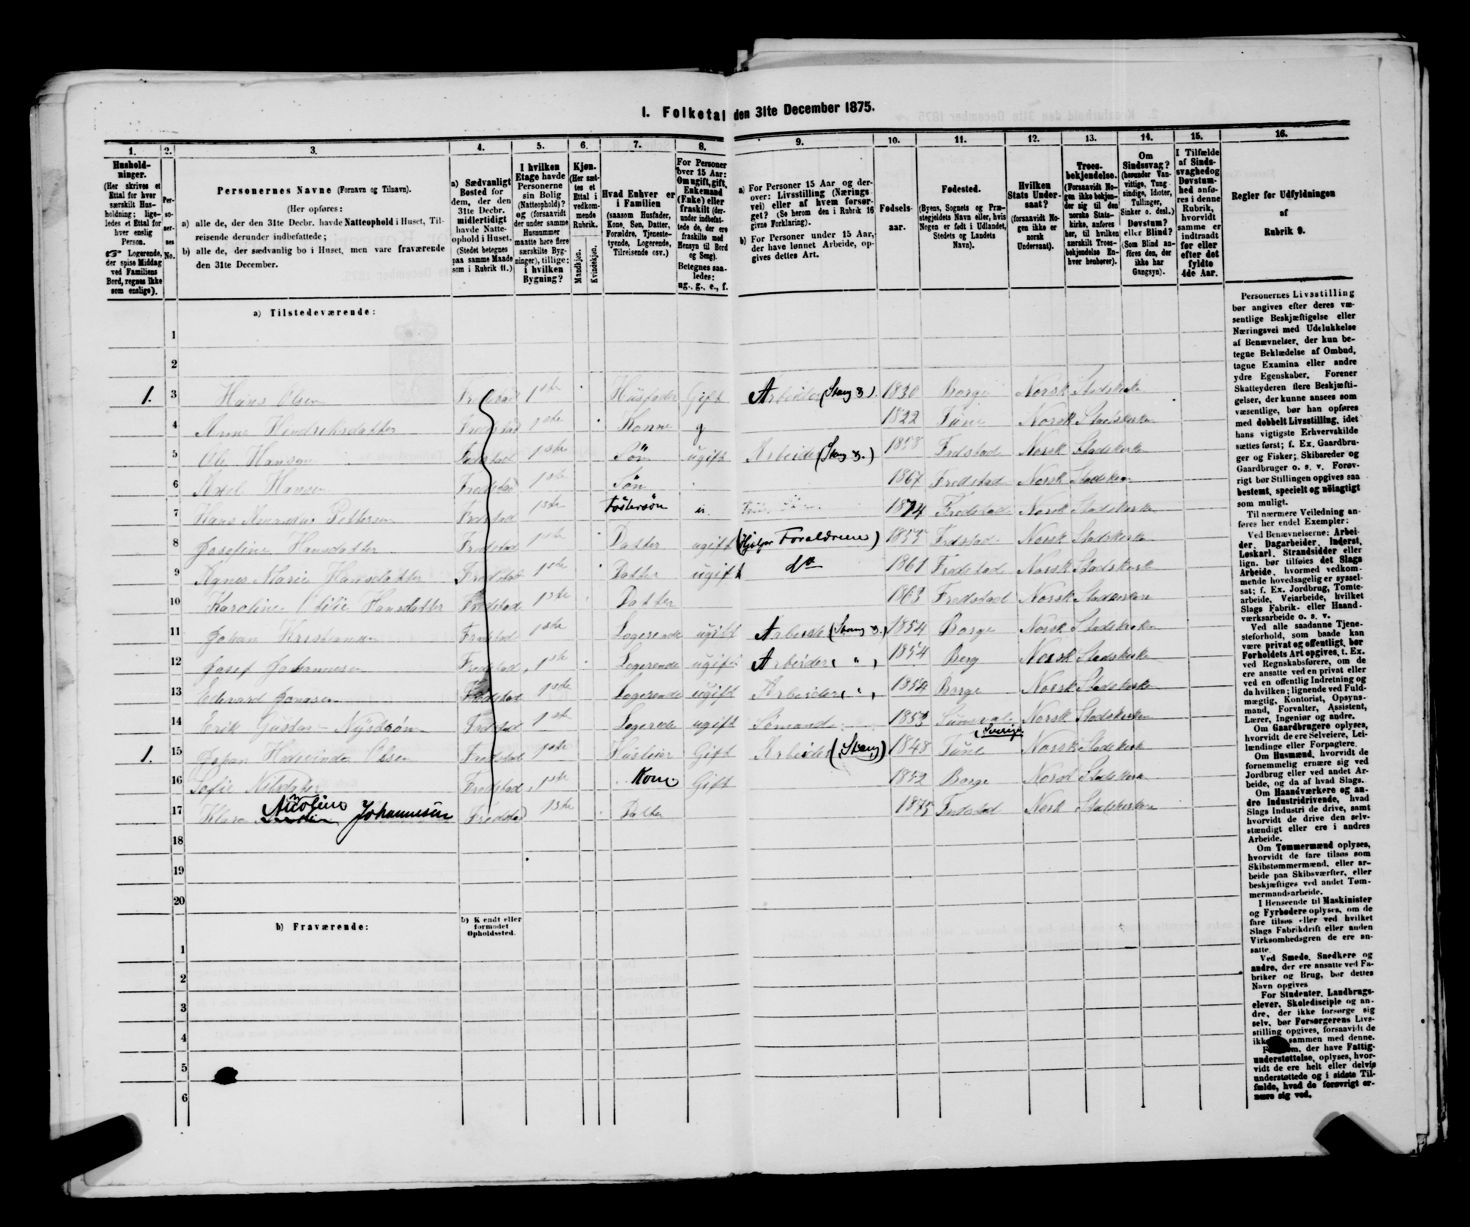 1. Folketal den 31te December 1875.
1. 2. 3. 4. 5. 6. 7. 8. 9. 10. 11. 12. 13. 14. 15. 16.
Hushold-
ninger.
(Her skrives et
Ettal for hver
særskilt Hus-
holdning; lige-
ledes et Ettal for
hver enslig
Person.
☞ Logerende,
der spise Middag
ved Familiens
Bord, regnes ikke
som enslige).
Per-
so-
ner-
nes
No.
Personernes Navne (Fornavn og Tilnavn).
(Her opføres:
a) alle de, der den 31te Decbr. havde Natteophold i Huset, Til-
reisende derunder indbefattede;
b) alle de, der sædvanlig bo i Huset, men vare fraværende
den 31te December.
a) Sædvanligt
Bosted for
dem, der den
31te Decbr.
midlertidigt
havde Natte-
ophold i Huset,
(Stedet betegnes
paa samme Maade
som i Rubrik 11.)
I hvilken
Etage havde
Personerne
sin Bolig
(Natteophold)?
og (forsaavidt
der under samme
Husnummer
maatte høre flere
særskilte Byg-
ninger), tillige:
i hvilken
Bygning?
Kjøn.
(Her sæt-
tes et
Ettal i
vedkom-
mende
Rubrik.
Mandkjøn.
Kvindekjøn.
Hvad Enhver er
i Familien
(saasom Husfader,
Kone, Søn, Datter,
Forældre, Tjeneste-
tyende, Logerende,
Tilreisende osv.)
For Personer
over 15 Aar:
Om ugift, gift,
Enkemand
(Enke) eller
fraskilt (der-
under indbefat-
tede de, der ere
fraskilte med
Hensyn til Bord
og Seng).
Betegnes saa-
ledes:
ug., g., e., f.
a) For Personer 15 Aar og der-
over: Livsstilling (Nærings-
vei) eller af hvem forsør-
get? (Se herom den i Rubrik 16
givne Forklaring).
b) For Personer under 15 Aar,
der have lønnet Arbeide, op-
gives dettes Art.
Fødsels-
aar.
Fødested.
(Byens, Sognets og Præ-
stegjeldets Navn eller, hvis
Nogen er født i Udlandet,
Stedets og Landets
Navn).
Hvilken
Stats Under-
saat?
(forsaavidt No-
gen ikke er
norsk
Undersaat).
Troes-
bekjendelse.
(Forsaavidt No-
gen ikke bekjen-
der sig til den
norske Stats-
kirke, anføres
her, til hvilken
særskilt Troes-
bekjendelse En-
hver henhører).
Om
Sindssvag?
(herunder Van-
vittige, Tung-
sindige, Idioter,
Tullinger,
Sinker o. desl.)
Døvstum?
eller Blind?
(Som Blind an-
føres den, der
ikke har
Gangsyn).
I Tilfælde
af Sinds-
svaghed og
Døvstum-
hed anfø-
res i denne
Rubrik,
hvorvidt
samme er
indtraadt
før eller
efter det
fyldte
4de Aar.
Regler for Udfyldningen
af
Rubrik 9.
a) Tilstedeværende:
1
2
1. 3 Hans Olsen Fredstad 1ste Husfader Gift Arbeider (Stang 3). 1830 Borge Norsk Stadskirke
4 Anne Hendriksdatter Fredstad 1ste Konne g 1822 Tune Norsk Stadskirke
5 Ole Hansen Fredstad 1ste Søn ugift Arbeider (Stang 3.) 1858 Fredstad Norsk Stadskirke
6 Axel Hansen Fredstad 1ste Søn 1867 Fredstad Norsk
7 Hans Pettersen Fredstad 1ste Fostersøn 1874 Fredstad Norsk Stadskirke
8 Josefine Hansdatter Fredstad 1ste Datter ugift (Hjelper Forældrene) 1855 Fredstad Norsk Stadskirke
9 Agnes Marie Hansdatter Fredstad 1ste Datter ugift do 1861 Fredstad Norsk Stadskirke
10 Karoline Hansdatter Fredstad 1ste Datter 1863 Fredstad Norsk Stadskirke
11 Johan Kristiansen Fredstad 1ste Logerende ugift Arbeider (Stang 3.) 1854 Borge Norsk Stadskirke
12 Josef Johannesen Fredstad 1ste Logerende ugift Arbeider ( " ) 1854 Berg Norsk Stadskirke
13 Edevard Jonasen Fredstad 1ste Logerende ugift Arbeider ( " ) 1854 Borge Norsk Stadskirke
14 Erik Gustav Fredstad 1ste Logerende ugift Sømand 1852 (Sverige) Norsk Stadskirke
1. 15 Johan Olsen Fredstad 1ste Husfader Gift Arbeider (Stang) 1848 Tune Norsk Stadskirke
16 Sofie Fredstad 1ste Kone Gift 1852 Borge Norsk Stadskirke
17 Klara Nicoline Johannesen Fredstad 1ste Datter 1875 Fredstad Norsk Stadskirke
18
19
20
b) Fraværende:
b) Kjendt eller
formodet
Opholdssted.
1
2
3
4
5
6
Personernes Livsstilling
bør angives efter deres væ-
sentlige Beskjæftigelse eller
Næringsvei med Udelukkelse
af Benævnelser, der kun be-
tegne Beklædelse af Ombud,
tagne Examina eller andre
ydre Egenskaber. Forener
Skatteyderen flere Beskjæfti-
gelser, der kunne ansees som
væsentlige, bør han opføres
med dobbelt Livsstilling, idet
hans vigtigste Erhvervskilde
sættes først; f. Ex. Gaardbru-
ger og Fisker; Skibsreder og
Gaardbruger o. s. v. Forøv-
rigt bør Stillingen opgives saa
bestemt, specielt og nøiagtigt
som muligt.
Til nærmere Veiledning an-
føres her endel Exempler:
Ved Benævnelserne: Arbei-
der, Dagarbeider, Inderst,
Løskarl, Strandsidder eller
lign. bør tilføies det Slags
Arbeide, hvormed vedkom-
mende hovedsagelig er syssel-
sat; f. Ex. Jordbrug, Tomte-
arbeide, Veiarbeide, hvilket
Slags Fabrik- eller Haand-
værksarbeide o. s. v.
Ved alle saadanne Tjene-
steforhold, som baade kan
være privat og offentligt, bør
Forholdets Art opgives, f. Ex.
ved Regnskabsførere, om de
ere ansatte ved en privat eller
ved en offentlig Indretning og
da hvilken; lignende ved Fuld-
mægtig, Kontorist, Opsyns-
mand, Forvalter, Assistent,
Lærer, Ingeniør og andre.
Om Gaardbrugere oplyses,
hvorvidt de ere Selveiere, Lei-
lændinge eller Forpagtere.
Om Husmænd, hvorvidt de
fornemmelig ernære sig ved
Jordbrug eller ved andet Ar-
beide, og da af hvad Slags.
Om Haandværkere og an-
dre Industridrivende, hvad
Slags Industri de drive, samt
hvorvidt de drive den selv-
stændigt eller ere i andres
Arbeide.
Om Tømmermænd oplyses,
hvorvidt de fare tilsøs som
Skibstømmermænd, eller ar-
beide paa Skibsværfter, eller
beskjæftiges ved andet Tøm-
mermandsarbeide.
I Henseende til Maskinister
og Fyrbødere oplyses, om de
fare tilsøs eller ved hvilket
Slags Fabrikdrift eller anden
Virksomhedsgren de ere an-
satte.
Ved Smede, Snedkere og
andre, der ere ansatte ved Fa-
briker og Brug, bør dettes
Navn opgives
For Studenter, Landbrugs-
elever, Skoledisciple og an-
dre, der ikke forsørge sig
selv, bør Forsørgerens Livs-
stilling opgives, forsaavidt de
ikke sammen med denne.
der have Fattig-
understøttelse, oplyses, hvor-
vidt de ere helt eller delvis
understøttede og i sidste Til-
fælde, hvad de forøvrigt er-
nære sig ved.